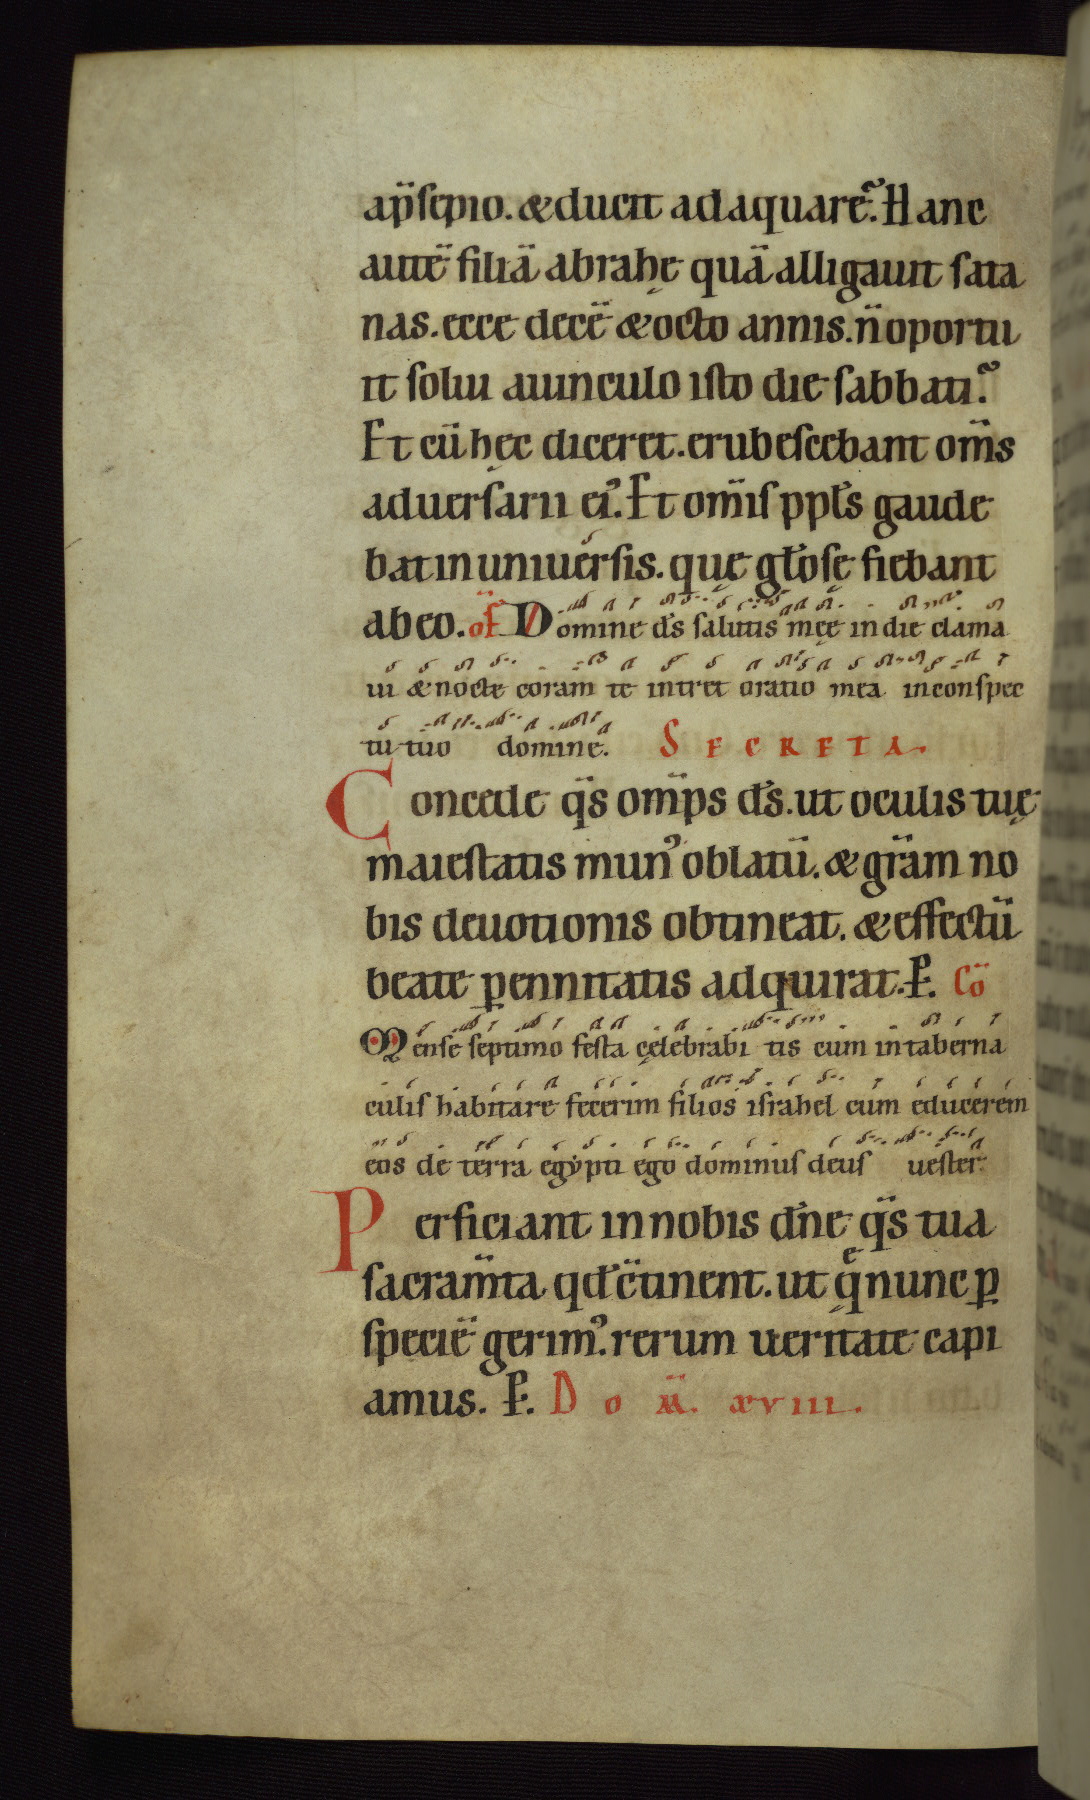 ap̄sepio. & ducit adaquarē. Hanc
autē filiā abrahę quā alligauit sata
nas. ecce decē & octo annis. n̄ oportu
it solui auinculo isto die sabbati.
Et cū hęc diceret. erubescebant om̄s
aduersarii ei'. Et om̄is ppl's gaude
bat in uniuersis. quę gl'osę fiebant
ab eo. of Domine d's salutis meę in die clama
ui & nocte coram te intret oratio mea in conspec
tu tuo domine. SECRETA.
Concede q̄s om̄ps d's. ut oculis tuę
maiestatis mun' oblatū. & gr̄am no
bis deuotionis obtineat. & effectū
beate ꝑennitatis adquirat. P. Cō
Mense septimo festa cęlebrabi tis cum in taberna
culis habitare fecerim filios israhel cum educerem
eos de terra egypti ego dominus deus uester.
Perficiant in nobis dn̄e q̄s tua
sacram̄ta qd' c̄tinent. ut q̨̄ nunc ꝑ
speciē gerim'. rerum ueritate capi
amus. P. Dom̄. xviii.